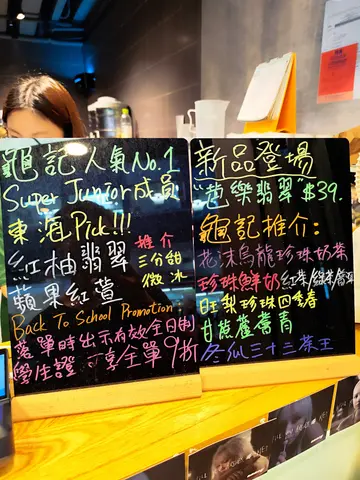 龜記人氣No.1
Super Junior成員
東海Pick!!!
紅柚翡翠
蘋果紅萱
推介
三分甜
微冰
Back To School Promotion
落單時出示有效全日制
學生證 可享全單9折
新品登場
芭樂翡翠 $39.
龜記推介：
花沫烏龍珍珠奶茶
珍珠鮮奶紅茶/綠茶/翡翠
旺梨珍珠四季春
甘蔗蘆薈青
冬仙三十三茶王